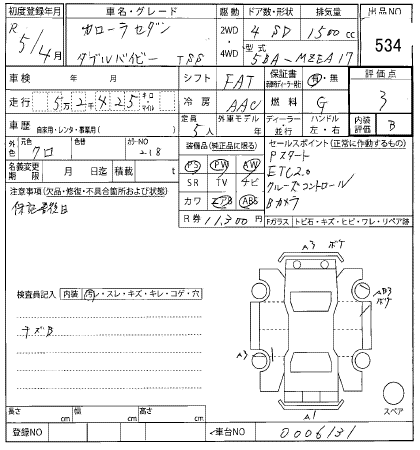 初度登録年月 車名・グレード 駆動 ドア数・形状 排気量 出品NO
R 5/4月 カローラセダン 2WD 4 SD 1500cc 534
ダブルバイビー 4WD 型式 5BA-MZEA17
車検 年 月 シフト FAT 保証書 有・無 評価点
走行 5万2425 キロ マイル 冷房 AAC 燃料 G 3
車歴 自家用・レンタ・事業用( ) 定員 5人 外車モデル ディーラー・並行 ハンドル 左・右 内装評価 B
外色 元色 クロ 色替 カラーNO 218 装備品(純正品に限る) セールスポイント(正常に作動するもの)
名義変更期限 月 日迄 積載 t PS PW AW Pスタート
注意事項(欠品・修復・不具合箇所および状態) SR TV ナビ ETC2.0
カワ エアB ABS クルーズコントロール
R券 11,300円 Bカメラ
Fガラス トビ石・キズ・ヒビ・ワレ・リペア跡
A3 ボケ
検査員記入 内装 汚レ・スレ・キズ・キレ・コゲ・穴
AB3 ボケ
キズB
A3
A1
スペア
長さ cm 幅 cm 高さ cm
登録NO 車台NO 0006131